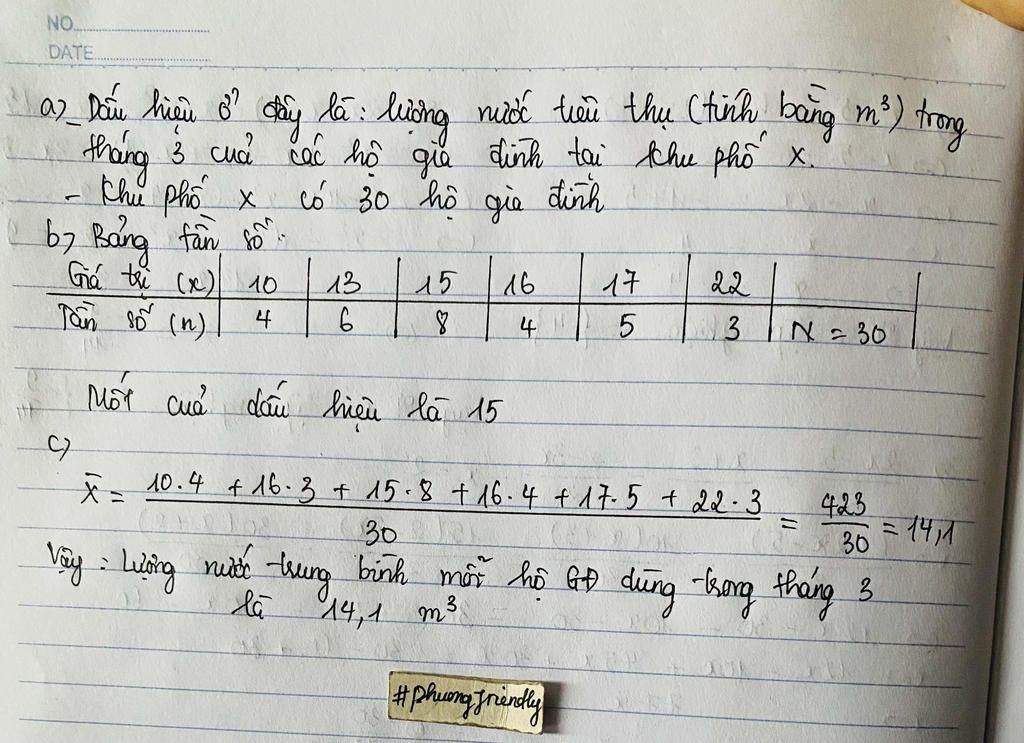 NO
DATE
a) - Dấu hiệu ở đây là: lượng nước tiêu thụ (tính bằng m³) trong
tháng 3 của các hộ gia đình tại khu phố x.
- Khu phố x có 30 hộ gia đình
b) Bảng tần số:
Giá trị (x) 10 13 15 16 17 22
Tần số (n) 4 6 8 4 5 3 N = 30
Mốt của dấu hiệu là 15
c)
x̄ = (10.4 + 16.3 + 15.8 + 16.4 + 17.5 + 22.3)/30 = 423/30 = 14,1
Vậy: Lượng nước trung bình mỗi hộ GĐ dùng trong tháng 3
là 14,1 m³
#phuongfriendly